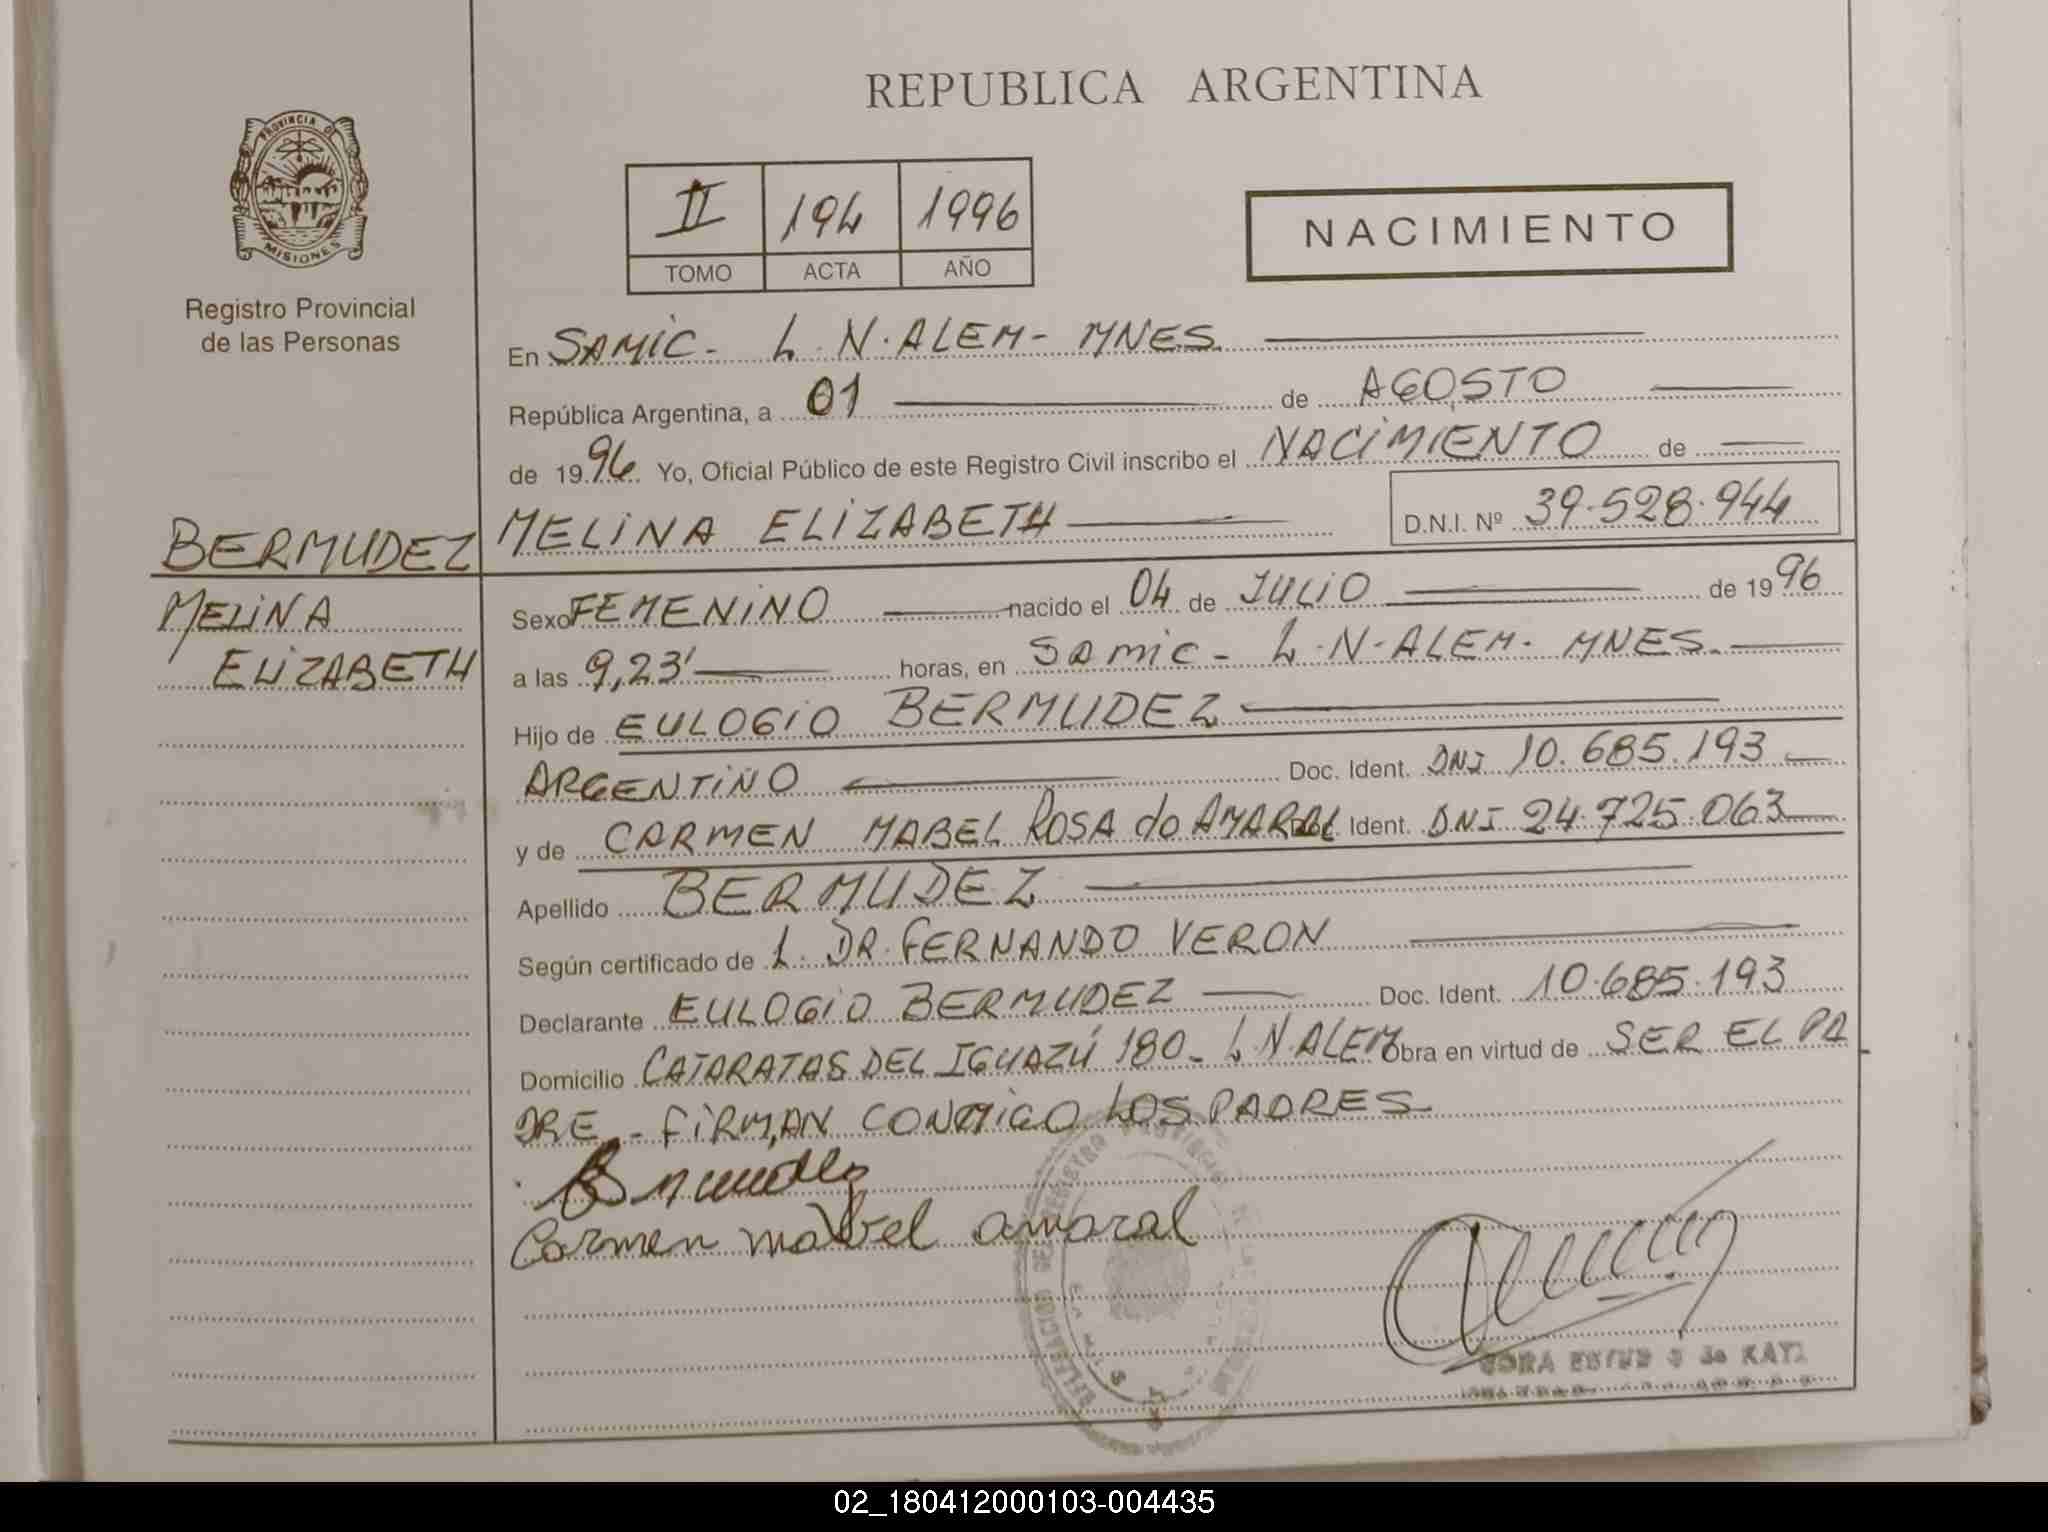 REPUBLICA ARGENTINA
PROVINCIA DE
MISIONES
Registro Provincial
de las Personas
II 194 1996
TOMO ACTA AÑO
NACIMIENTO
En SAMIC - L. N. ALEM - MNES.
República Argentina, a 01 de AGOSTO
de 1996 Yo, Oficial Público de este Registro Civil inscribo el NACIMIENTO de
BERMUDEZ MELINA ELIZABETH D.N.I. Nº 39.528.944
MELINA
ELIZABETH
Sexo FEMENINO nacido el 04 de JULIO de 1996
a las 9,23' horas, en SAMIC - L.N-ALEM- MNES.
Hijo de EULOGIO BERMUDEZ
ARGENTINO Doc. Ident. DNI 10.685.193
y de CARMEN MABEL ROSA do AMARAL Doc. Ident. DNI 24.725.063
Apellido BERMUDEZ
Según certificado de L. DR. FERNANDO VERON
Declarante EULOGIO BERMUDEZ Doc. Ident. 10.685.193
Domicilio CATARATAS DEL IGUAZÚ 180 - L.N.ALEM Obra en virtud de SER EL PA
DRE - FIRMAN CONMIGO LOS PADRES
Bermudez
Carmen mabel amaral
DELEGACION DE REGISTRO PROVINCIAL
KATZ
02_180412000103-004435